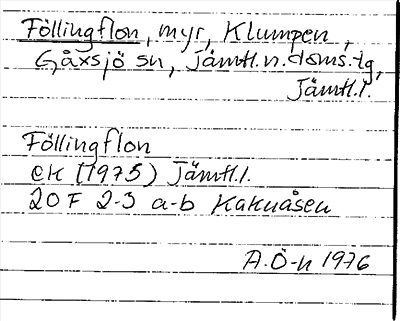 Föllingflon, myr, Klumpen,
Gåxsjö sn, Jämtl.n.doms.tg,
Jämtl.l.
Föllingflon
ek (1975) Jämtl.l.
20F 2-3 a-b Kakuåsen
A.Ö-n 1976